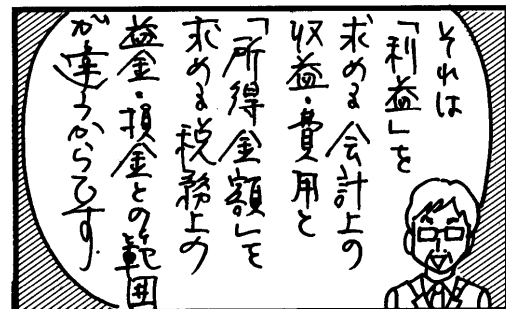 それは
「利益」を
求める会計上の
収益・費用と
「所得金額」を
求める税務上の
益金・損金との範囲
が違うからです。